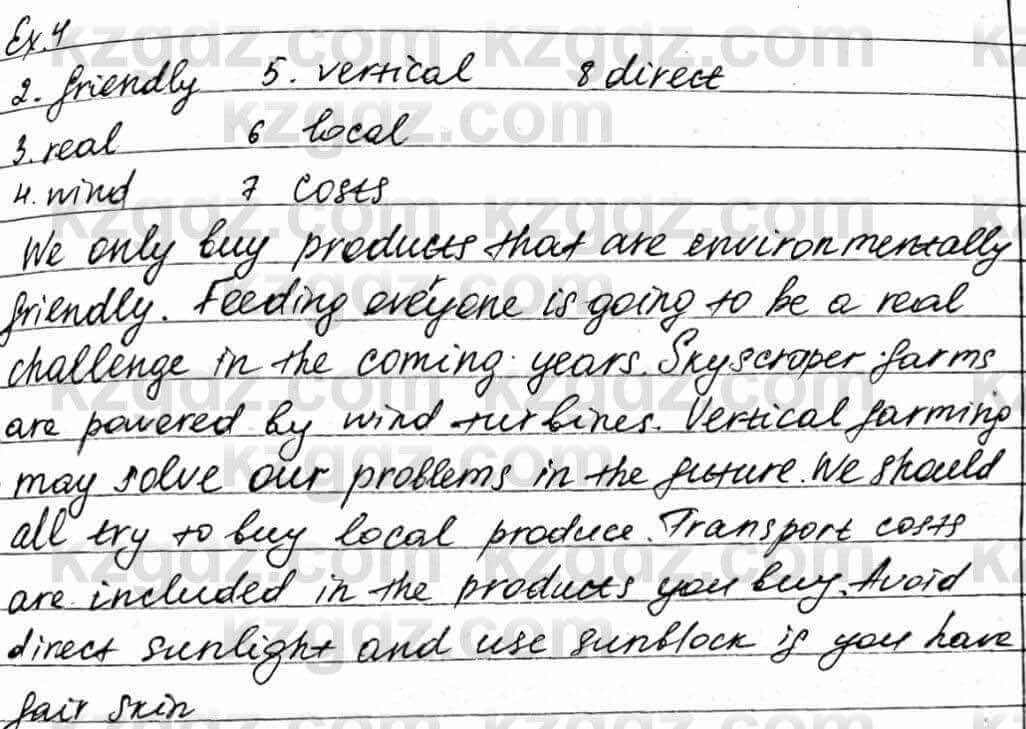 Ex.4
2. friendly 5. vertical 8 direct
3. real 6 local
4. wind 7 costs
We only buy products that are environmentally
friendly. Feeding eveyone is going to be a real
challenge in the coming years. Skyscraper farms
are powered by wind turbines. Vertical farming
may solve our problems in the future. We should
all try to buy local produce. Transport costs
are included in the products you buy. Avoid
direct sunlight and use sunblock if you have
fair skin
kzgdz.com